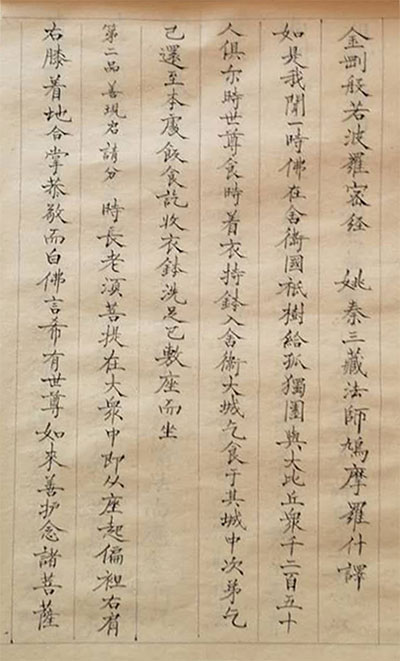 金剛般若波羅密经 姚秦三藏法師鳩摩羅什譯
如是我聞一時佛在舍衛國祇樹給孤獨園與大比丘衆千二百五十
人俱尔時世尊食時着衣持鉢入舍衛大城乞食于其城中次第乞
已還至本處飯食訖收衣鉢洗足已敷座而坐
第二品善現启請分 時長老須菩提在大衆中即从座起偏袒右肩
右膝着地合掌恭敬而白佛言希有世尊如來善护念諸菩薩